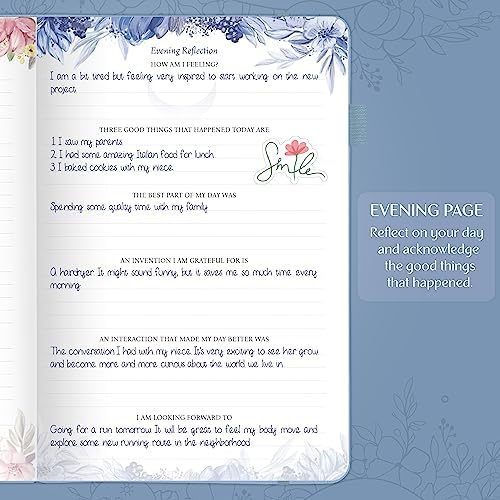 Evening Reflection
HOW AM I FEELING?
I am a bit tired but feeling very inspired to start working on the new
project
THREE GOOD THINGS THAT HAPPENED TODAY ARE
1. I saw my parents
2. I had some amazing Italian food for lunch.
3. I baked cookies with my niece.
Smile
THE BEST PART OF MY DAY WAS
Spending some quality time with my family
AN INVENTION I AM GRATEFUL FOR IS
A hairdryer. It might sound funny, but it saves me so much time every
morning.
AN INTERACTION THAT MADE MY DAY BETTER WAS
The conversation I had with my niece. It's very exciting to see her grow
and become more and more curious about the world we live in.
I AM LOOKING FORWARD TO
Going for a run tomorrow. It will be great to feel my body move and
explore some new running route in the neighborhood
EVENING PAGE
Reflect on your day
and acknowledge
the good things
that happened.